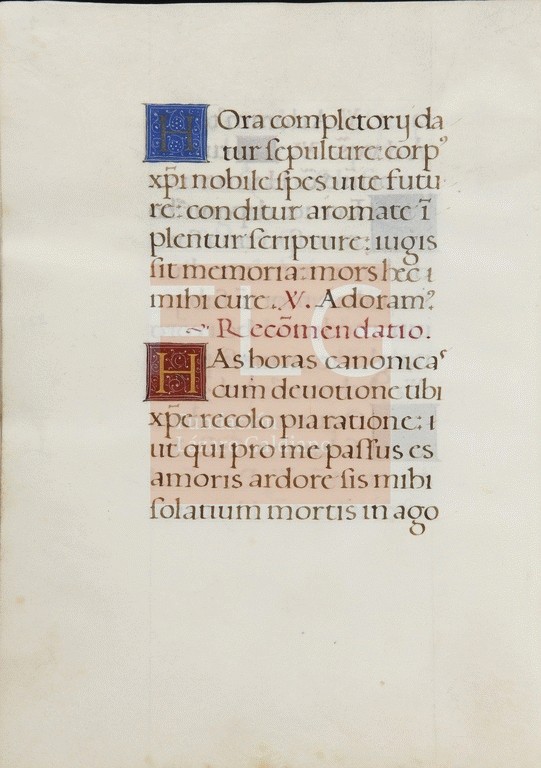 HOra completorij da
tur sepulture: corpꝰ
xp̄i nobile spes uite futu
re: conditur aromate ī
plentur scripture: iugis
sit memoria: mors hec ı
mihi cure. ℣. Adoram̃ꝰ
Recõmendatio.
HAs horas canonicas
cum deuotione tibi
xp̄e recolo pia ratione: ı
ut qui pro me passus es
amoris ardore sis mihi
solatium mortis in ago
FLG
Lázaro Galdiano